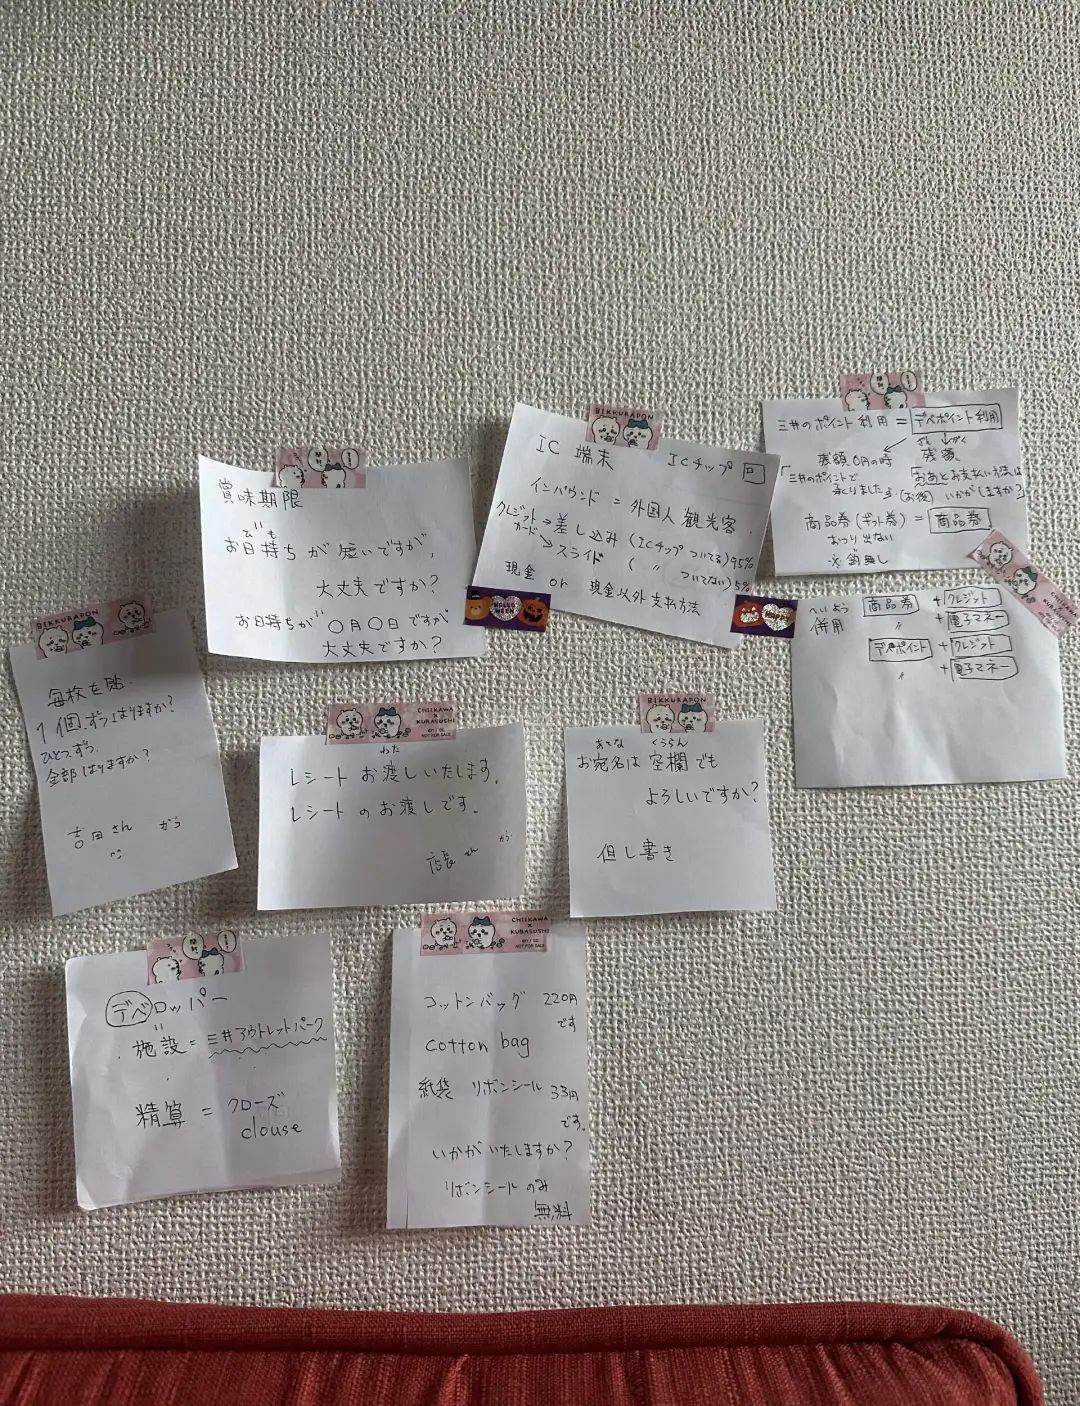 賞味期限
びも
お日持ちが短いですが、
大丈夫ですか?
お日持ちが〇月〇日ですが
大丈夫ですか?
BIKKURAPON
IC 端末 ICチップ
インバウンド = 外国人観光客.
クレジットカード → 差し込み (ICチップついてる) 95%
↘ スライド ( 〃 ついてない) 5%
現金 or 現金以外支払方法
HALLOWEEN
三井のポイント利用 = デベポイント利用
残額0円の時 残額
ざん がく
「三井のポイントで
承りました」
「おあとお支払い方法は
(お後) いかがしますか?
商品券 (ギフト券) = 商品券
おつり出ない
へいよう
併用
商品券 + クレジット
〃 + 電子マネー
デベポイント + クレジット
〃 + 電子マネー
BIKKURAPON
毎枚を貼
1個ずつはりますか?
ひとつずつ
全部はりますか?
吉田さん から
CHIIKAWA
×
KURASUSHI
NOT FOR SALE
わた
レシートお渡しいたします。
レシートのお渡しです。
店長さん から
BIKKURAPON
あてな くうらん
お宛名は空欄でも
よろしいですか?
但し書き
デベロッパー
〃
施設 = 三井アウトレットパーク
精算 = クローズ
clouse
CHIIKAWA
×
KURASUSHI
NOT FOR SALE
コットンバッグ 220円
です
cotton bag
紙袋 リボンシール 33円
です。
いかがいたしますか?
リボンシールのみ
無料